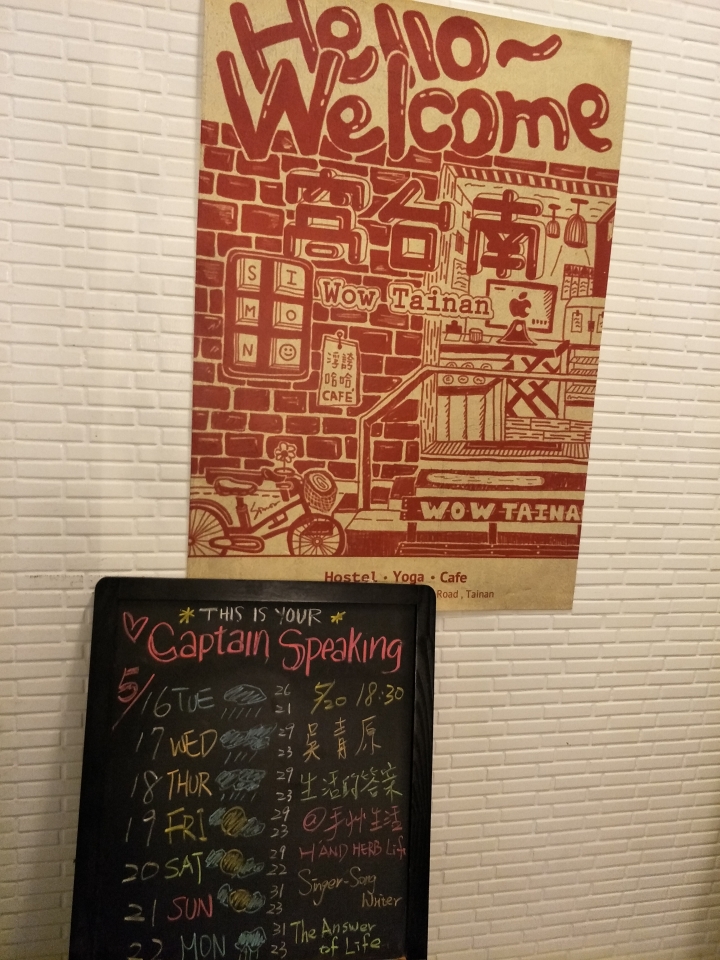 Hello~
Welcome
窩台南
Wow Tainan
SI
MO
N
哈哈
CAFE
WOW TAINA
Hostel · Yoga · Cafe
Road , Tainan
THIS IS YOUR
Captain Speaking
5/16 TUE 26 21
5/20 18:30
17 WED 29 23
吳青原
18 THUR 29 23
生活的答案
19 FRI 29 23
@手艸生活
HAND HERB Life
20 SAT 29 22
Singer-Song
Writer
21 SUN 31 23
The Answer
of Life
22 MON 31 23